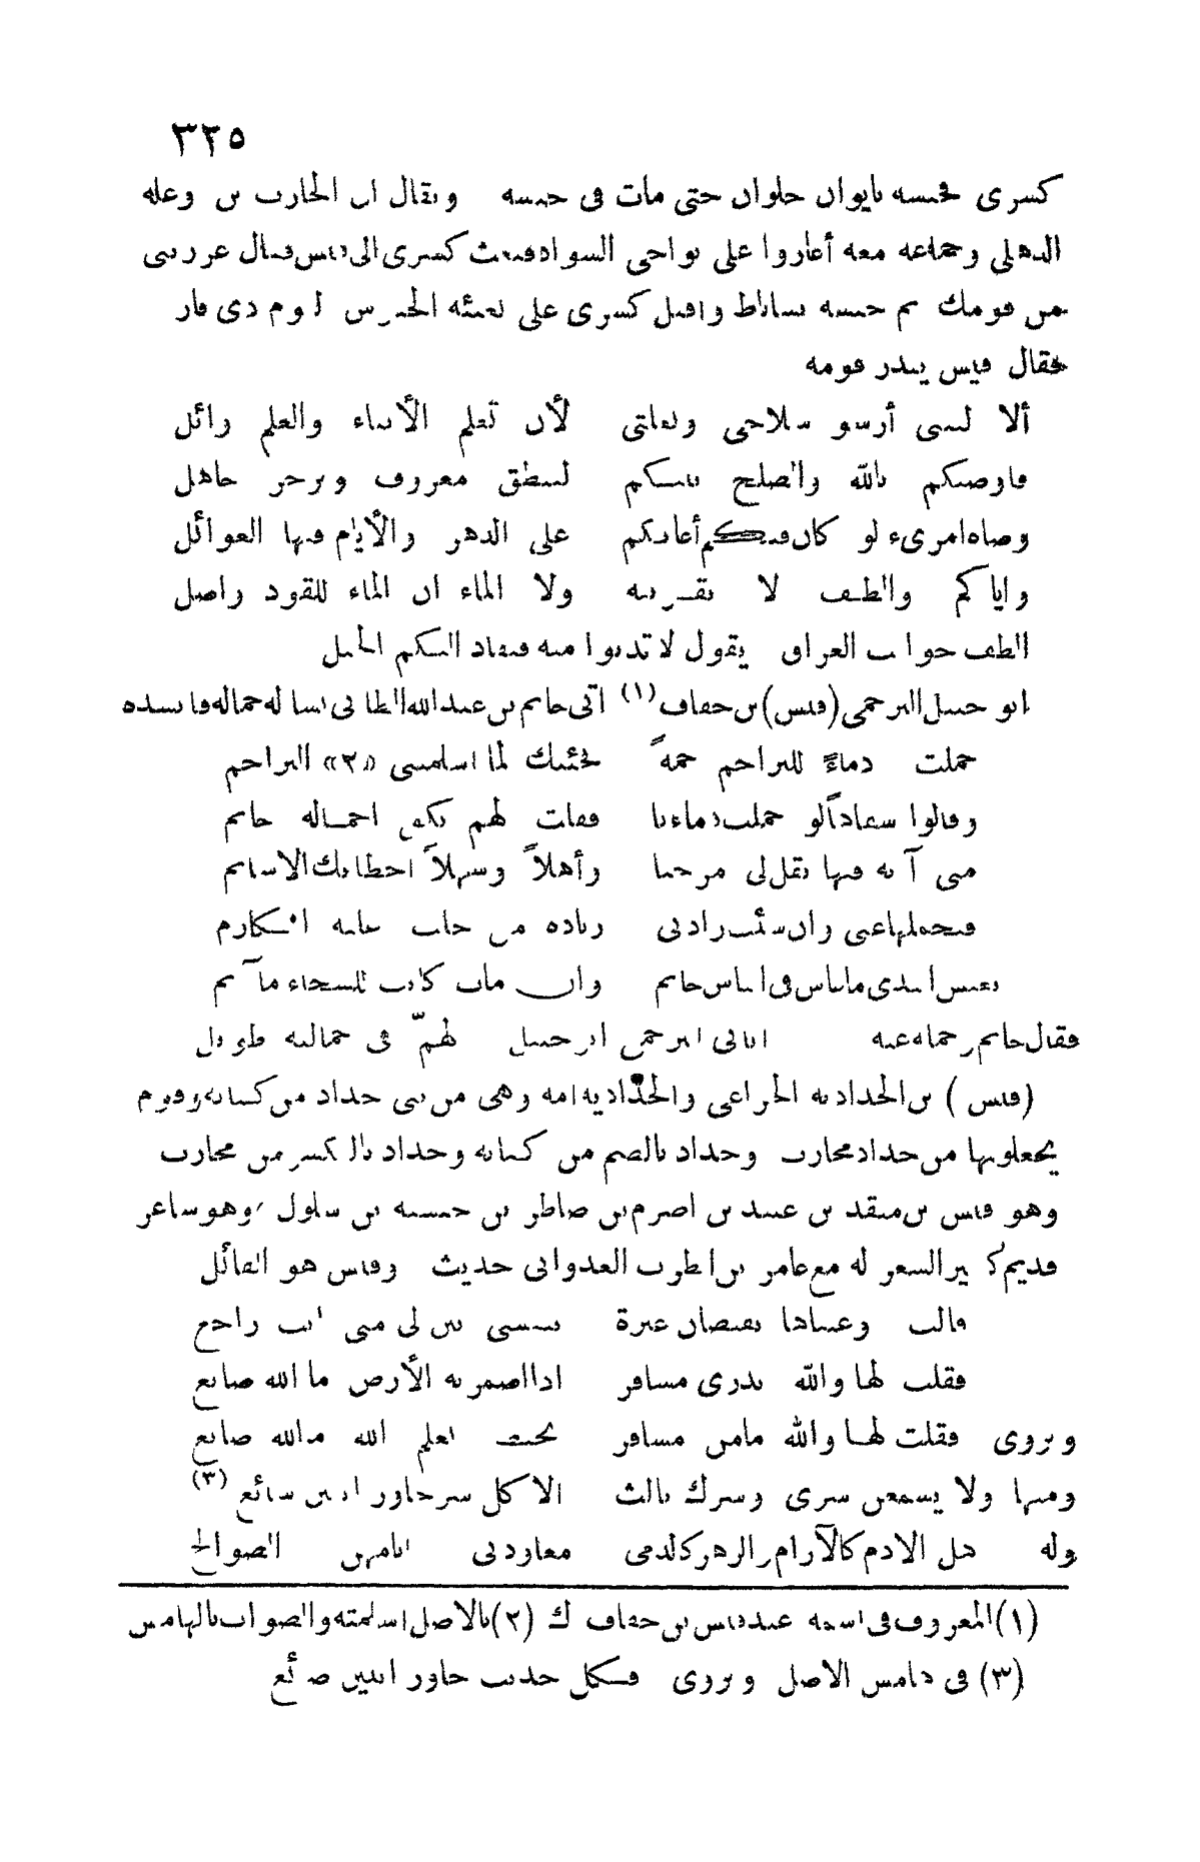 ٣٢٥
كسرى فحبسه بايوان حلوان حتى مات فى حبسه ويقال ان الحارث بن وعلة
الذهلي وجماعة معه أغاروا على نواحى السواد فبعث كسرى الى قيس فقال غررتنى
من قومك ثم حبسه بساباط واقبل كسرى على تعبئة الجيوش ليوم ذى قار
فقال قيس ينذر قومه
ألا ليتنى أرشو سلاحى وبغلتى لأن تعلم الأنباء والعلم وائل
فاوصيكم بالله والصلح بينكم لينطق معروف ويزجر جاهل
وصاة امرىء لو كان فيكم أعانكم على الدهر والأيام فيها الغوائل
واياكم والطف لا تقربنه ولا الماء ان الماء للقود واصل
الطف جوانب العراق يقول لا تدنوا منه فتقاد اليكم الخيل
ابو جبيل البرجمى (قيس) بن خفاف (١) اتى حاتم بن عبد الله الطائى يسأله حمالة فانشده
حملت دماءً للبراجم جمةً فجئتك لما اسلمتنى «٢» البراجم
وقالوا سفاهاً لو حملت دماءنا فقلت لهم يكفى الحمالة حاتم
متى آته فيها يقل لى مرحبا وأهلاً وسهلاً اخطأتك الاشائم
فيحملها عنى وان شئت زادنى زيادة من حلت عليه المكارم
يعيش الندى ما عاش فى الناس حاتم وان مات كانت للسخاء مآتم
فقال حاتم رحمة الله عنه اتانى البرجمى ابو جبيل لهمّ فى حمالته طويل
(قيس) بن الحدادية الخزاعى والحدادية امه وهى من بنى حداد من كنانة وقوم
يجعلونها من حداد محارب وحداد بالضم من كنانة وحداد بالكسر من محارب
وهو قيس بن منقذ بن عبيد بن اصرم بن ضاطر بن حبشية بن سلول وهو شاعر
قديم كثير الشعر له مع عامر بن الظرب العدوانى حديث وقيس هو القائل
قالت وعيناها تفيضان عبرة بنفسى بين لى متى انت راجع
فقلت لها والله يدرى مسافر اذا اضمرته الأرض ما الله صانع
ويروى فقلت لها والله ما من مسافر يحيط بعلم الله ما الله صانع
ومنها ولا يسمعن سرى وسرك ثالث الا كل سر جاوز اثنين شائع (٣)
وله هل الادم كالآرام والزهر كالدمى معاودتى ايامهن الصوالح
(١) المعروف فى اسمه عبد قيس بن خفاف ك (٢) بالاصل اسلمته والصواب بالهامش
(٣) فى هامش الاصل ويروى فكل حديث جاوز اثنين ضائع